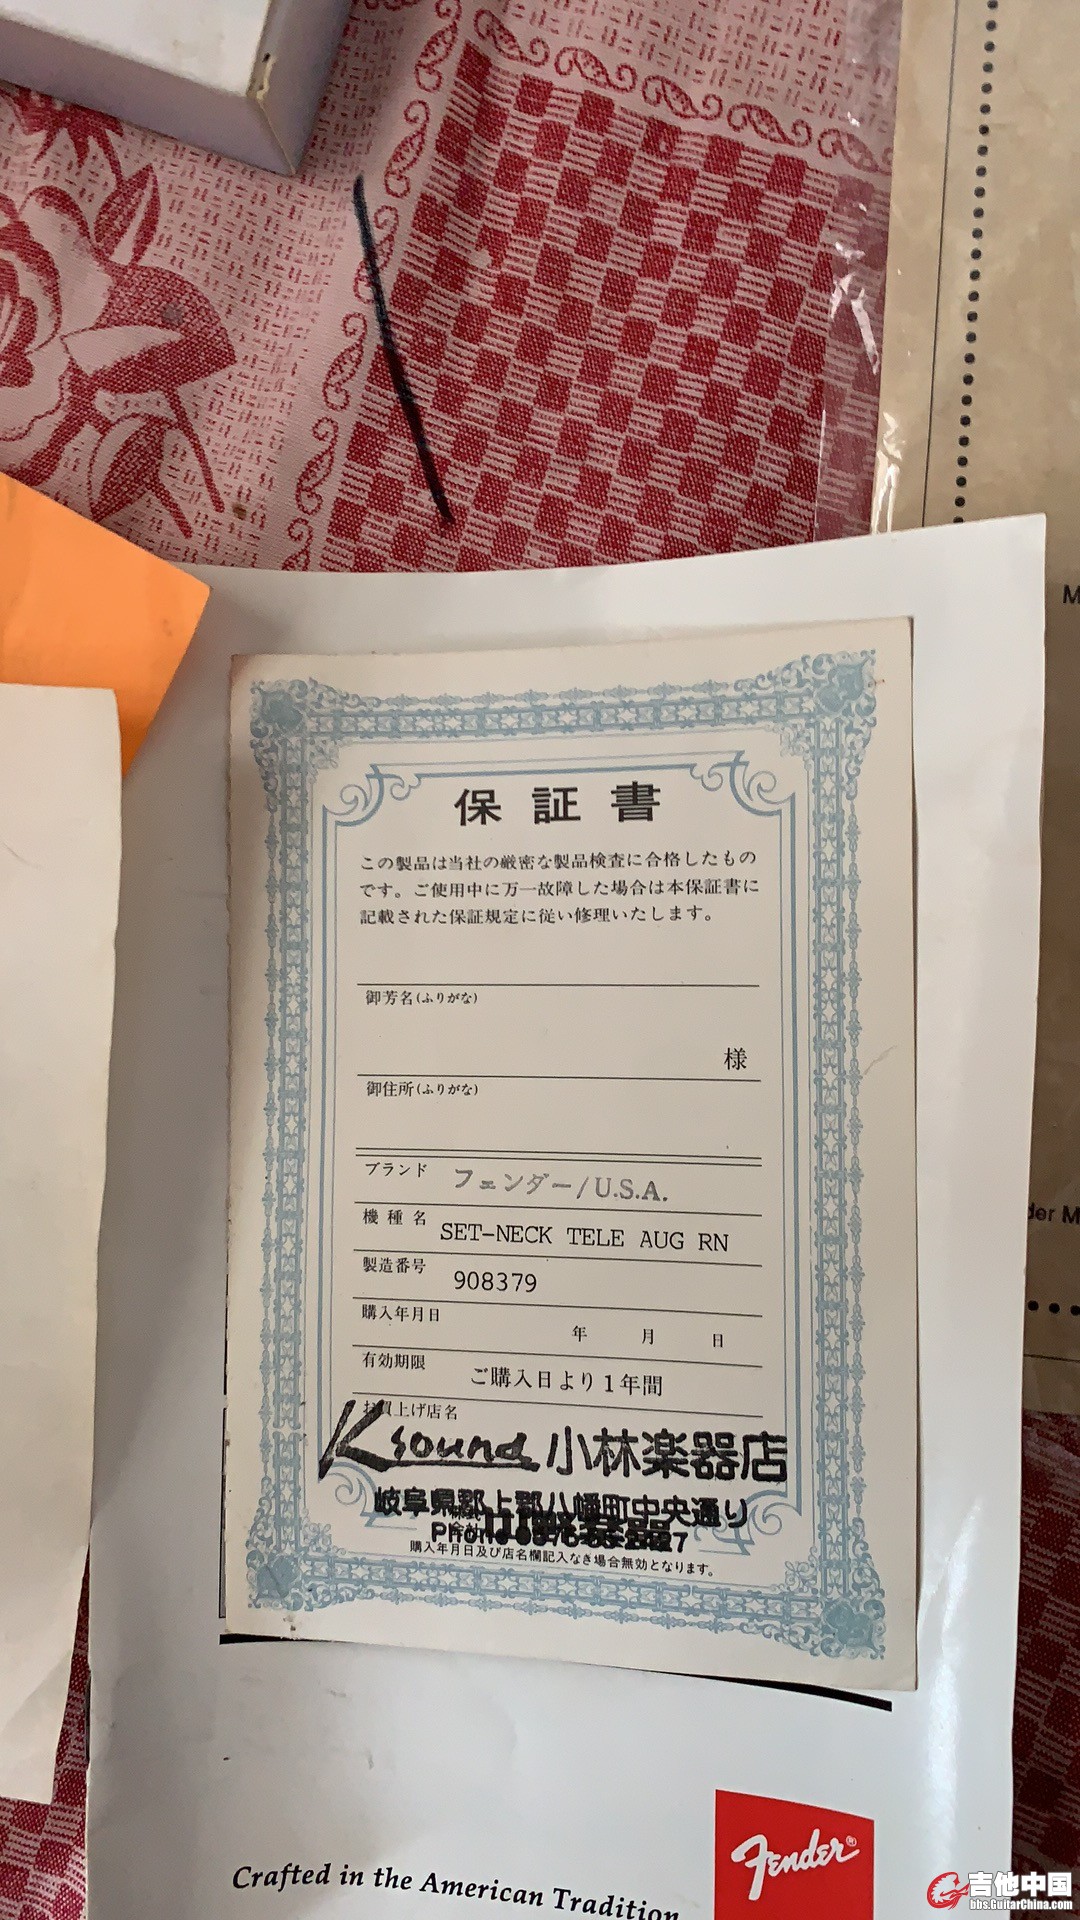 保証書
この製品は当社の厳密な製品検査に合格したもの
です。ご使用中に万一故障した場合は本保証書に
記載された保証規定に従い修理いたします。
御芳名(ふりがな)
様
御住所(ふりがな)
ブランド フェンダー/U.S.A.
機種名 SET-NECK TELE AUG RN
製造番号 908379
購入年月日 年 月 日
有効期限 ご購入日より1年間
お買上げ店名
K sound 小林楽器店
岐阜県郡上郡八幡町中央通り
購入年月日及び店名欄記入なき場合無効となります。
Crafted in the American Tradition
Fender®
吉他中国
bbs.GuitarChina.com
M
der M